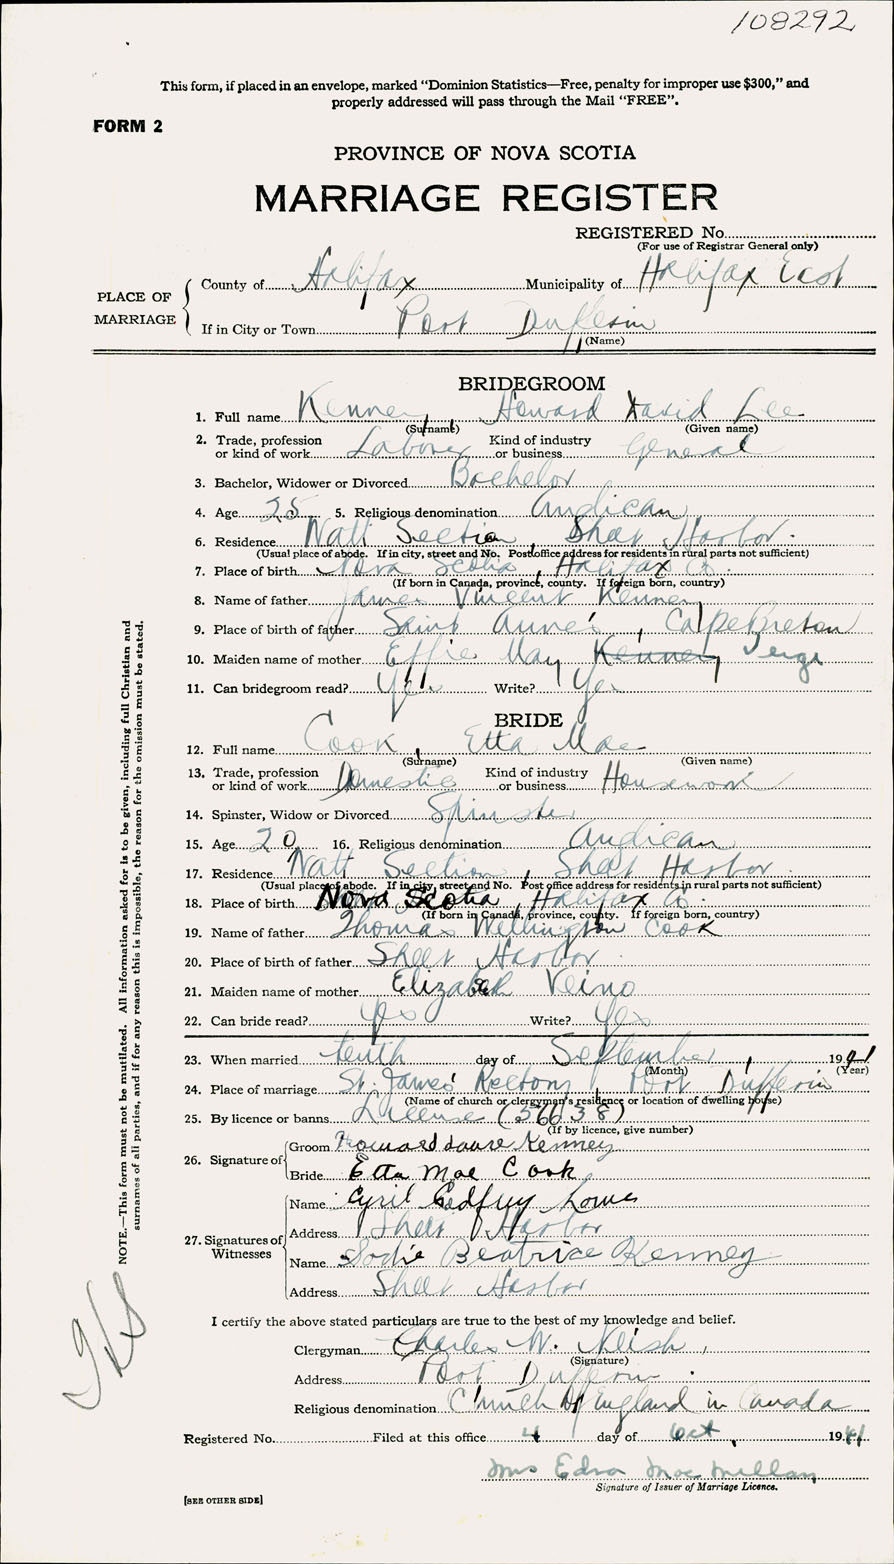 108292
This form, if placed in an envelope, marked “Dominion Statistics—Free, penalty for improper use $300,” and
properly addressed will pass through the Mail “FREE”.
FORM 2
PROVINCE OF NOVA SCOTIA
MARRIAGE REGISTER
REGISTERED No.
(For use of Registrar General only)
PLACE OF MARRIAGE
County of Halifax Municipality of Halifax East
If in City or Town Port Dufferin
(Name)
BRIDEGROOM
1. Full name Kenney, Howard David Lee
(Surname) (Given name)
2. Trade, profession or kind of work Laborer Kind of industry or business General
3. Bachelor, Widower or Divorced Bachelor
4. Age 25 5. Religious denomination Anglican
6. Residence Watt Section, Sheet Harbor.
(Usual place of abode. If in city, street and No. Post office address for residents in rural parts not sufficient)
7. Place of birth Nova Scotia, Halifax Co.
(If born in Canada, province, county. If foreign born, country)
8. Name of father James Vincent Kenney
9. Place of birth of father Saint Anne's, Cape Breton
10. Maiden name of mother Effie May Kenney
11. Can bridegroom read? Yes Write? Yes
BRIDE
12. Full name Cook, Etta Mae
(Surname) (Given name)
13. Trade, profession or kind of work Domestic Kind of industry or business Housework
14. Spinster, Widow or Divorced Spinster
15. Age 20 16. Religious denomination Anglican
17. Residence Watt Section, Sheet Harbor.
(Usual place of abode. If in city, street and No. Post office address for residents in rural parts not sufficient)
18. Place of birth Nova Scotia, Halifax Co.
(If born in Canada, province, county. If foreign born, country)
19. Name of father Thomas Wellington Cook
20. Place of birth of father Sheet Harbor.
21. Maiden name of mother Elizabeth Veino
22. Can bride read? Yes Write? Yes
23. When married tenth day of September, 1941
(Month) (Year)
24. Place of marriage St. James' Rectory, Port Dufferin
(Name of church or clergyman's residence or location of dwelling house)
25. By licence or banns License (56638)
(If by licence, give number)
26. Signature of
Groom Howard Kenney
Bride Etta Mae Cook
27. Signatures of Witnesses
Name Cyril Godfrey Lowe
Address Sheet Harbor
Name Sadie Beatrice Kenney
Address Sheet Harbor
I certify the above stated particulars are true to the best of my knowledge and belief.
Clergyman Charles W.
(Signature)
Address Port Dufferin.
Religious denomination Church of England in Canada
Registered No. Filed at this office 4 day of Oct, 1941
Mrs Edna MacMillan
Signature of Issuer of Marriage Licence.
[SEE OTHER SIDE]
NOTE.—This form must not be mutilated. All information asked for is to be given, including full Christian and
surnames of all parties, and if for any reason this is impossible, the reason for the omission must be stated.